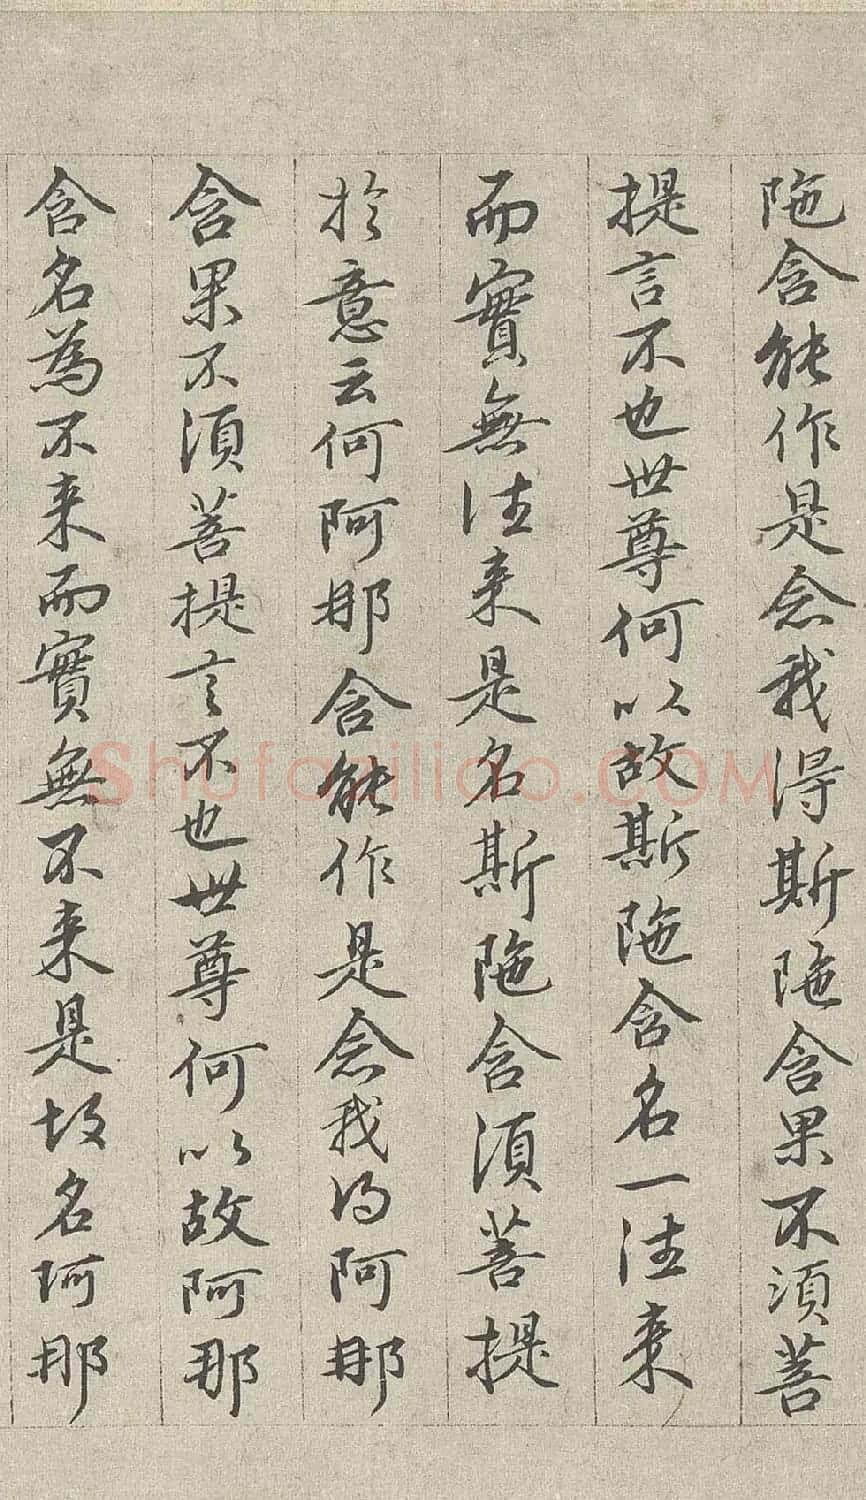 陁含能作是念我得斯陁含果不須菩
提言不也世尊何以故斯陁含名一往来
而實無往来是名斯陁含須菩提
於意云何阿那含能作是念我得阿那
含果不須菩提言不也世尊何以故阿那
含名為不来而實無不来是故名阿那
shufaziliao.COM